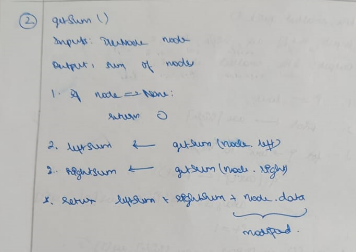 ② getSum ()
Input: TreeNode node
Output: sum of node
1. if node == None:
return 0
2. leftSum ← getSum (node. left)
2. rightSum ← getSum (node. right)
3. return leftSum + rightSum + node. data